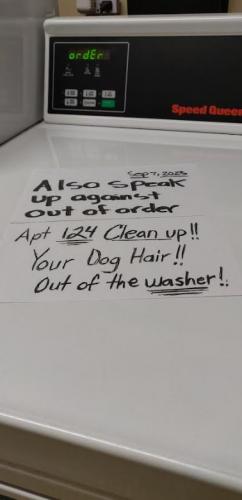 ordEr
Speed Queen
Sep 7, 2023
Also speak
up against
out of order
Apt 124 Clean up!!
Your Dog Hair!!
Out of the washer!.